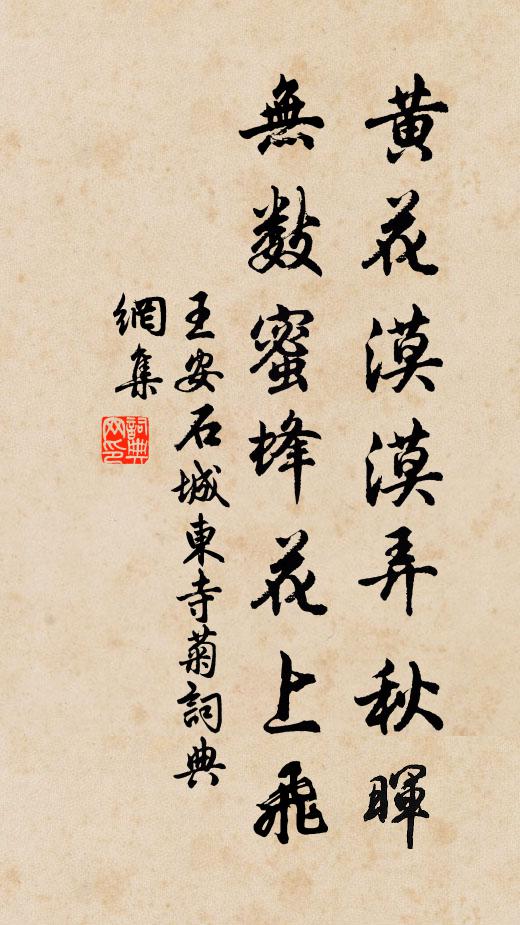 黄花漠漠弄秋暉
無数蜜蜂花上飛
王安石城東寺菊詞典
網集
詞典網印